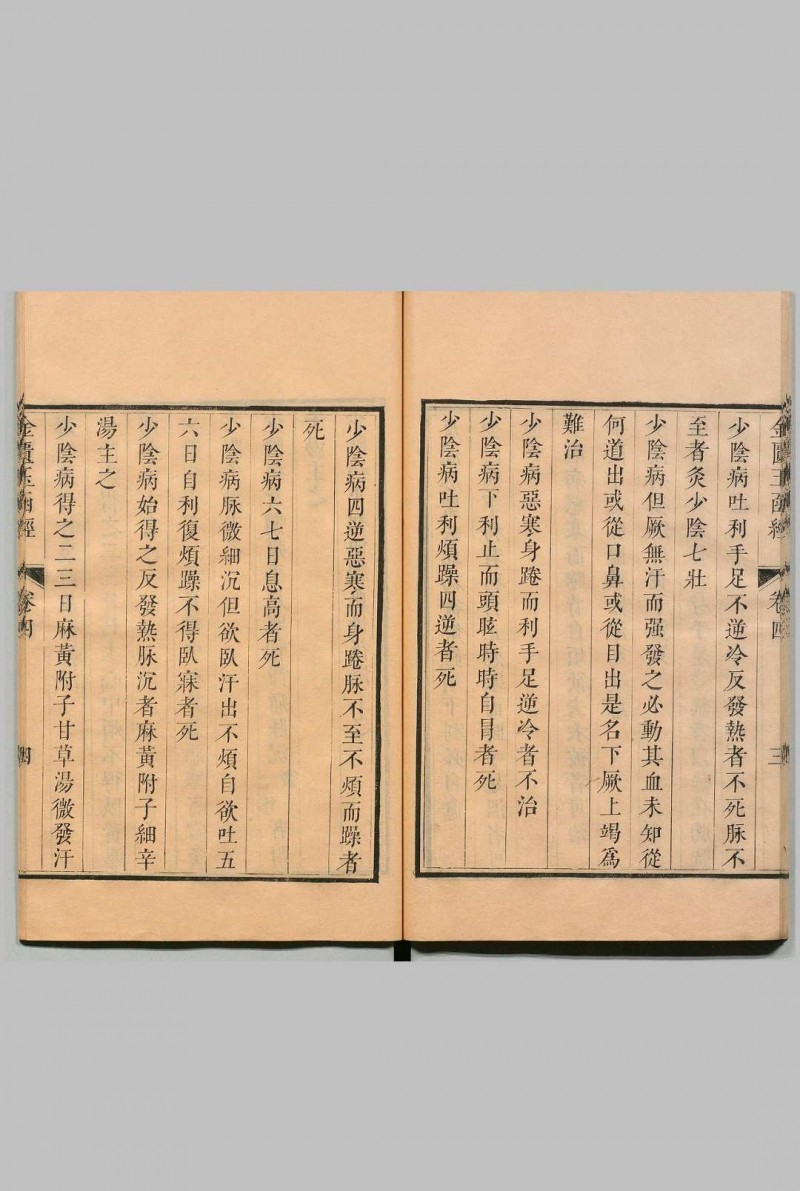 金匱玉函經 卷四 三
少陰病吐利手足不逆冷反發熱者不死脉不
至者灸少陰七壯
少陰病但厥無汗而强發之必動其血未知從
何道出或從口鼻或從目出是名下厥上竭爲
難治
少陰病惡寒身踡而利手足逆冷者不治
少陰病下利止而頭眩時時自冒者死
少陰病吐利煩躁四逆者死
少陰病四逆惡寒而身踡脉不至不煩而躁者
死
少陰病六七日息高者死
少陰病脉微細沉但欲臥汗出不煩自欲吐五
六日自利復煩躁不得臥寐者死
少陰病始得之反發熱脉沉者麻黃附子細辛
湯主之
少陰病得之二三日麻黃附子甘草湯微發汗
金匱玉函經 卷四 四